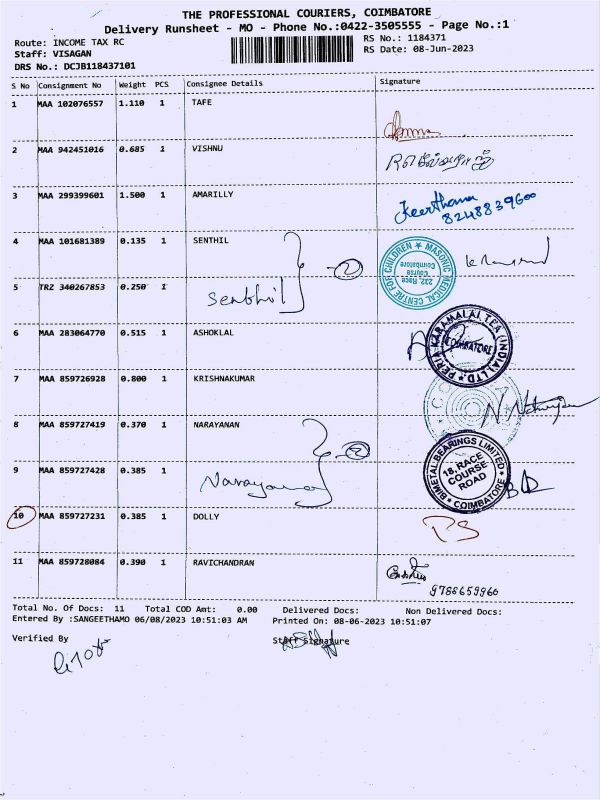 THE PROFESSIONAL COURIERS, COIMBATORE
Delivery Runsheet - MO - Phone No.:0422-3505555 - Page No.:1
Route: INCOME TAX RC RS No.: 1184371
Staff: VISAGAN RS Date: 08-Jun-2023
DRS No.: DCJB118437101
S No Consignment No Weight PCS Consignee Details Signature
1 MAA 102076557 1.110 1 TAFE
2 MAA 942451016 0.685 1 VISHNU
3 MAA 299399601 1.500 1 AMARILLY Keerthana
8248839600
4 MAA 101681389 0.135 1 SENTHIL 2 MASONIC MEDICAL CENTRE FOR CHILDREN 232, Race Course Coimbatore
5 TRZ 340267853 0.250 1 Senthil
6 MAA 283064770 0.515 1 ASHOKLAL PERIA KARAMALAI TEA (INDIA) LTD. COIMBATORE
7 MAA 859726928 0.800 1 KRISHNAKUMAR
8 MAA 859727419 0.370 1 NARAYANAN 2 BIMETAL BEARINGS LIMITED 18, RACE COURSE ROAD COIMBATORE
9 MAA 859727428 0.385 1 Narayanan
10 MAA 859727231 0.385 1 DOLLY
11 MAA 859728084 0.390 1 RAVICHANDRAN
9788659960
Total No. Of Docs: 11 Total COD Amt: 0.00 Delivered Docs: Non Delivered Docs:
Entered By :SANGEETHAMO 06/08/2023 10:51:03 AM Printed On: 08-06-2023 10:51:07
Verified By Staff Signature